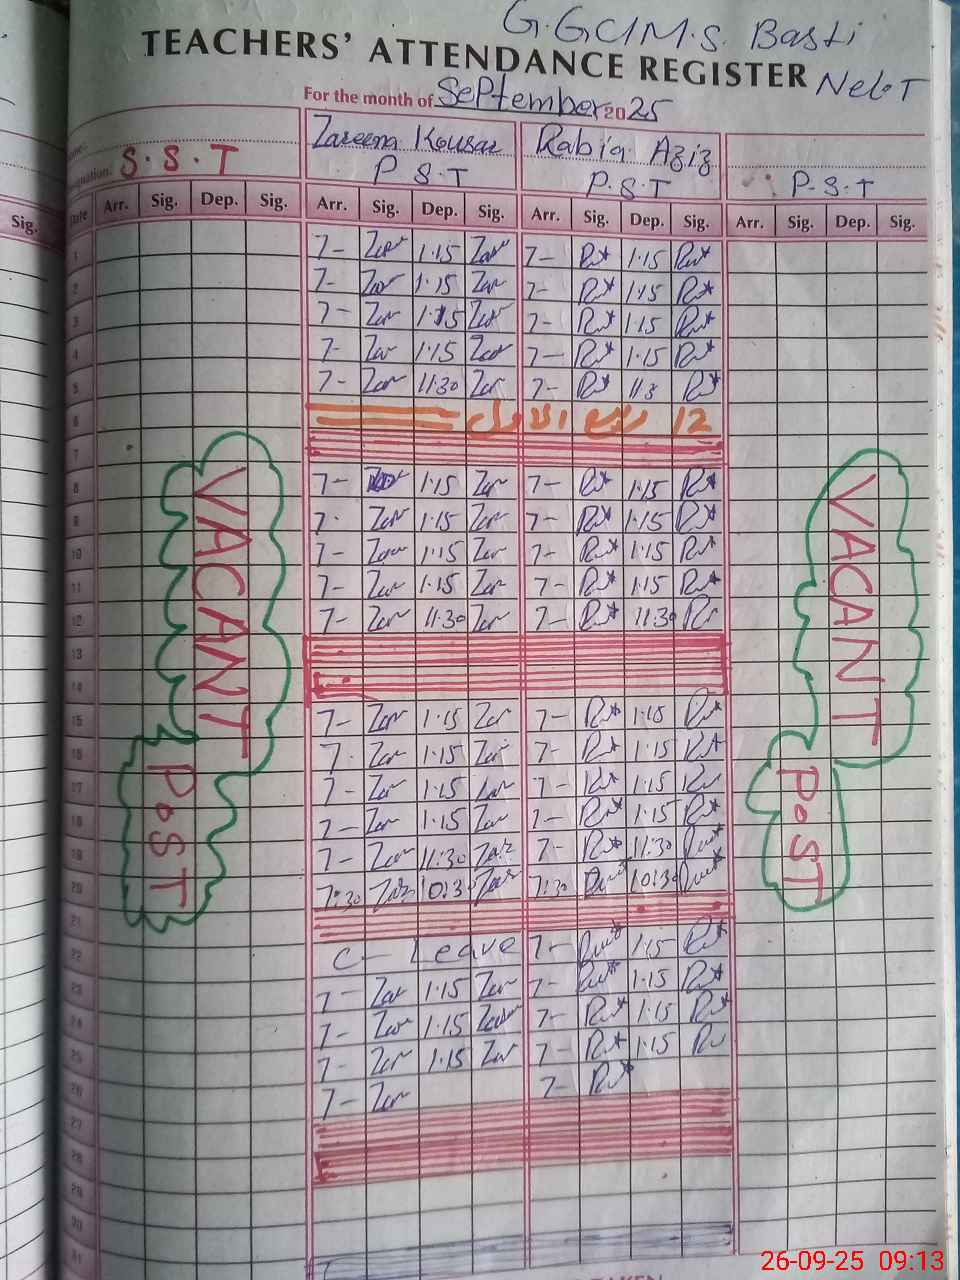 G.GCMS. Basti
TEACHERS' ATTENDANCE REGISTER
For the month of September 2025
S.S.T Zareena Kousar Rabia Aziz
P S.T P.S.T P.S.T
Sig. Date Arr. Sig. Dep. Sig. Arr. Sig. Dep. Sig. Arr. Sig. Dep. Sig. Arr. Sig. Dep. Sig.
1 7- Zar 1.15 Zar 7- Rut 1.15 Rut
2 7- Zar 1.15 Zar 7- Rut 1.15 Rut
3 7- Zar 1.15 Zar 7- Rut 1.15 Rut
4 7- Zar 1.15 Zar 7- Rut 1.15 Rut
5 7- Zar 11:30 Zar 7- Rut 11:3 Rut
6 12 ربیع الاول
7
8 7- 1.15 Zar 7- Rut 1.15 Rut
9 7- Zar 1.15 Zar 7- Rut 1.15 Rut
10 7- Zar 1.15 Zar 7- Rut 1.15 Rut
11 7- Zar 1.15 Zar 7- Rut 1.15 Rut
12 7- Zar 11:30 Zar 7- Rut 11:30
13
14
15 7- Zar 1.15 Zar 7- Rut 1.15 Rut
16 7- Zar 1.15 Zar 7- Rut 1.15 Rut
17 7- Zar 1.15 Zar 7- Rut 1.15
18 7- Zar 1.15 Zar 7- Rut 1.15 Rut
19 7- Zar 11:30 Zar 7- Rut 11:30
20 7:30 Zar 10:3 Zar 7:30 10:30
21
22 C- Leave 7- Rut 1.15 Rut
23 7- Zar 1.15 Zar 7- Rut 1.15 Rut
24 7- Zar 1.15 Zar 7- Rut 1.15 Rut
25 7- Zar 1.15 Zar 7- Rut 1.15
26 7- Zar 7- Rut
27
28
29
30
31
VACANT
POST
VACANT
POST
26-09-25 09:13